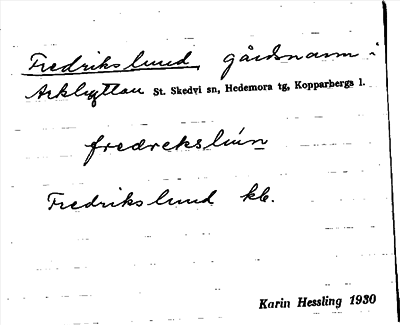 Fredrikslund, gårdsnamn i
Arkhyttan St. Skedvi sn, Hedemora tg, Kopparbergs l.
fredrekslún
Fredrikslund kb.
Karin Hessling 1930